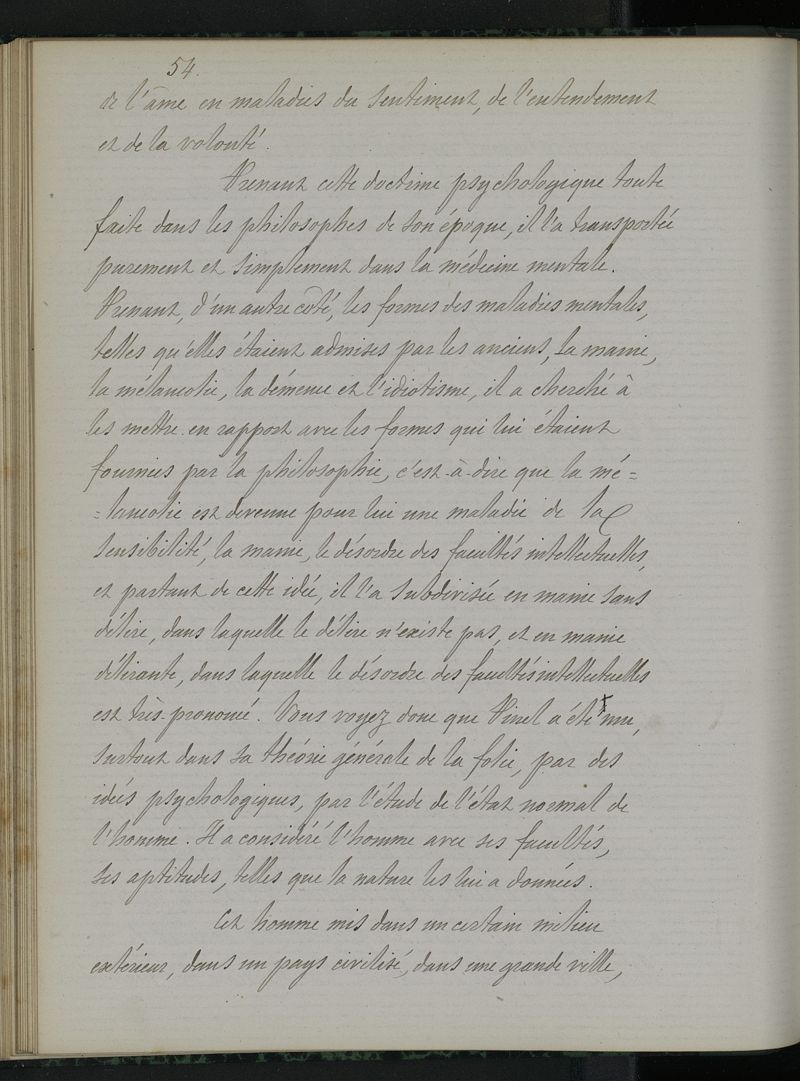 54.
de l'âme en maladies du sentiment, de l'entendement
et de la volonté.
Prenant cette doctrine psychologique toute
faite dans les philosophes de son époque, il l'a transportée
purement et simplement dans la médecine mentale.
Prenant, d'un autre côté, les formes des maladies mentales,
telles qu'elles étaient admises par les anciens, la manie,
la mélancolie, la démence et l'idiotisme, il a cherché à
les mettre en rapport avec les formes qui lui étaient
fournies par la philosophie, c'est-à-dire que la mé=
=lancolie est devenue pour lui une maladie de la
sensibilité, la manie, le désordre des facultés intellectuelles,
et partant de cette idée, il l'a subdivisée en manie sans
délire, dans laquelle le délire n'existe pas, et en manie
délirante, dans laquelle le désordre des facultés intellectuelles
est très-prononcé. Vous voyez donc que Pinel a été mu,
surtout dans sa théorie générale de la folie, par des
idées psychologiques, par l'étude de l'état normal de
l'homme. Il a considéré l'homme avec ses facultés,
ses aptitudes, telles que la nature les lui a données.
Cet homme mis dans un certain milieu
extérieur, dans un pays civilisé, dans une grande ville,